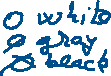 o white
o gray
o black